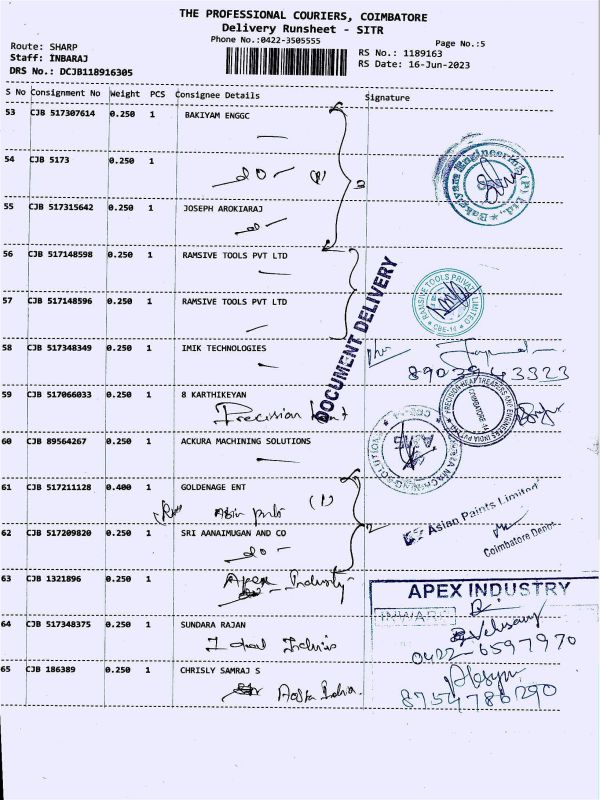 THE PROFESSIONAL COURIERS, COIMBATORE
Delivery Runsheet - SITR
Phone No.:0422-3505555
Page No.:5
Route: SHARP
Staff: INBARAJ
DRS No.: DCJB118916305
RS No.: 1189163
RS Date: 16-Jun-2023
S No Consignment No Weight PCS Consignee Details Signature
53 CJB 517307614 0.250 1 BAKIYAM ENGGC
54 CJB 5173 0.250 1
do - (1) 3
55 CJB 517315642 0.250 1 JOSEPH AROKIARAJ
do -
56 CJB 517148598 0.250 1 RAMSIVE TOOLS PVT LTD
57 CJB 517148596 0.250 1 RAMSIVE TOOLS PVT LTD
RAMSIVE TOOLS PRIVATE LIMITED
* CBE-14 *
DOCUMENT DELIVERY
58 CJB 517348349 0.250 1 IMIK TECHNOLOGIES
8903943323
59 CJB 517066033 0.250 1 8 KARTHIKEYAN
Precision Heat
PRECISION HEAT TREATERS AND ENGINEERS INDIA PVT
COIMBATORE-14
60 CJB 89564267 0.250 1 ACKURA MACHINING SOLUTIONS
61 CJB 517211128 0.400 1 GOLDENAGE ENT
Asian paints (1)
62 CJB 517209820 0.250 1 SRI AANAIMUGAN AND CO
do - 2
Asian Paints Limited
Coimbatore Depot
63 CJB 1321896 0.250 1 Apex Industry
APEX INDUSTRY
INWARD
64 CJB 517348375 0.250 1 SUNDARA RAJAN
Velusamy
0422-6597970
65 CJB 186389 0.250 1 CHRISLY SAMRAJ S
8754786290